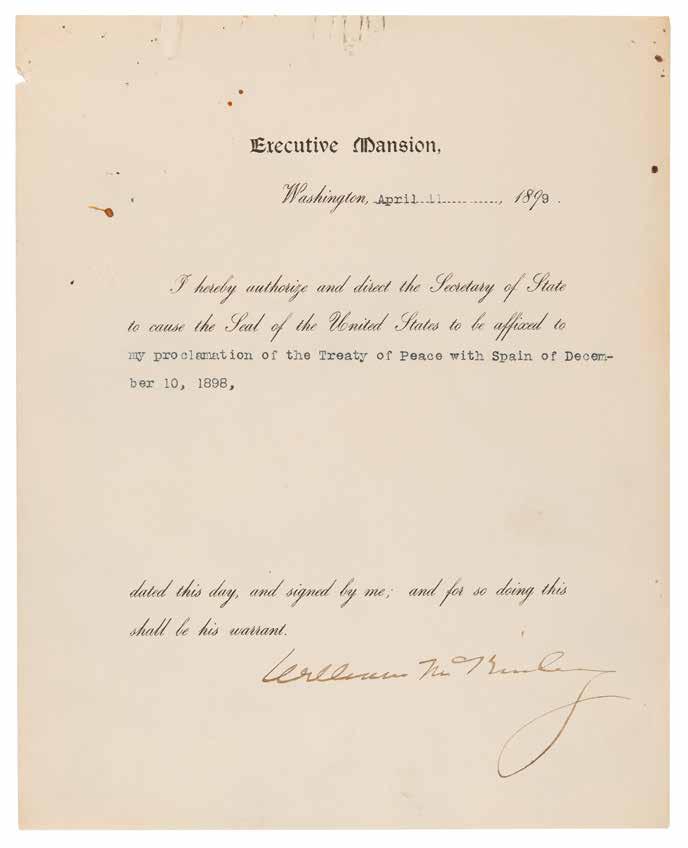 Executive Mansion,
Washington, April 11, 1899.
I hereby authorize and direct the Secretary of State
to cause the Seal of the United States to be affixed to
my proclamation of the Treaty of Peace with Spain of Decem-
ber 10, 1898,
dated this day, and signed by me; and for so doing this
shall be his warrant.
William McKinley